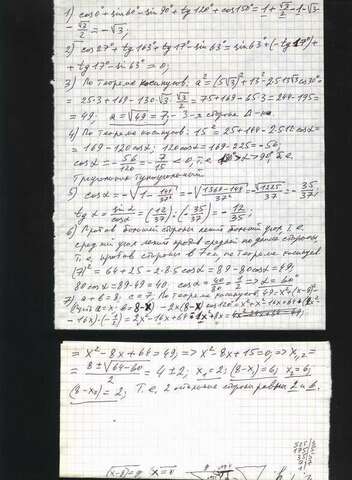 1) cos0°+sin60°-sin90°+tg120°+cos150°=1+√3/2-1-√3-
-√3/2=-√3;
2) cos27°+tg163°+tg17°-sin63°=sin63°+(-tg17°)+
+tg17°-sin63°=0;
3) По теореме косинусов: a²=(5√3)²+13²-2·5√3·13cos30°=
=25·3+169-130√3·√3/2=75+169-65·3=244-195=
=49; a=√49=7 - 3-я сторона Δ-ка
4) По теореме косинусов: 15²=25+144-2·5·12cosα=
=169-120cosα; 120cosα=169-225=-56;
cosα=-56/120=-7/15<0, т.е. α>90°, т.е.
Треугольник тупоугольный
5) cosα=-√1-144/37²=-√1369-144/37²=-√1225/37=-35/37;
tgα=sinα/cosα=(12/37):(-35/37)=-12/35;
6) Против большей стороны лежит больший угол, т.е.
средний угол лежит против средней по длине стороны
Т.е. против стороны в 7 см, по теореме косинусов
(7)²=64+25-2·8·5cosα=89-80cosα=49;
80cosα=89-49=40, cosα=40/80=1/2⇒α=60°
7) a+b=8; c=7. По теореме косинусов 49=x²+(8-x)²-
Пусть a=x; b=8-x -2x(8-x)cos120°=x²+x²-16x+64+(8·
-16x)·(-1/2)=2x²-16x+64+8x
=x²-8x+64=49;⇒x²-8x+15=0;⇒x₁,₂=
=8±√64-60/2=4±2; x₂=2; (8-x)=6; x₂=6;
(8-x₂)=2; Т.е. 2 остальные стороны равны 2 и 6.